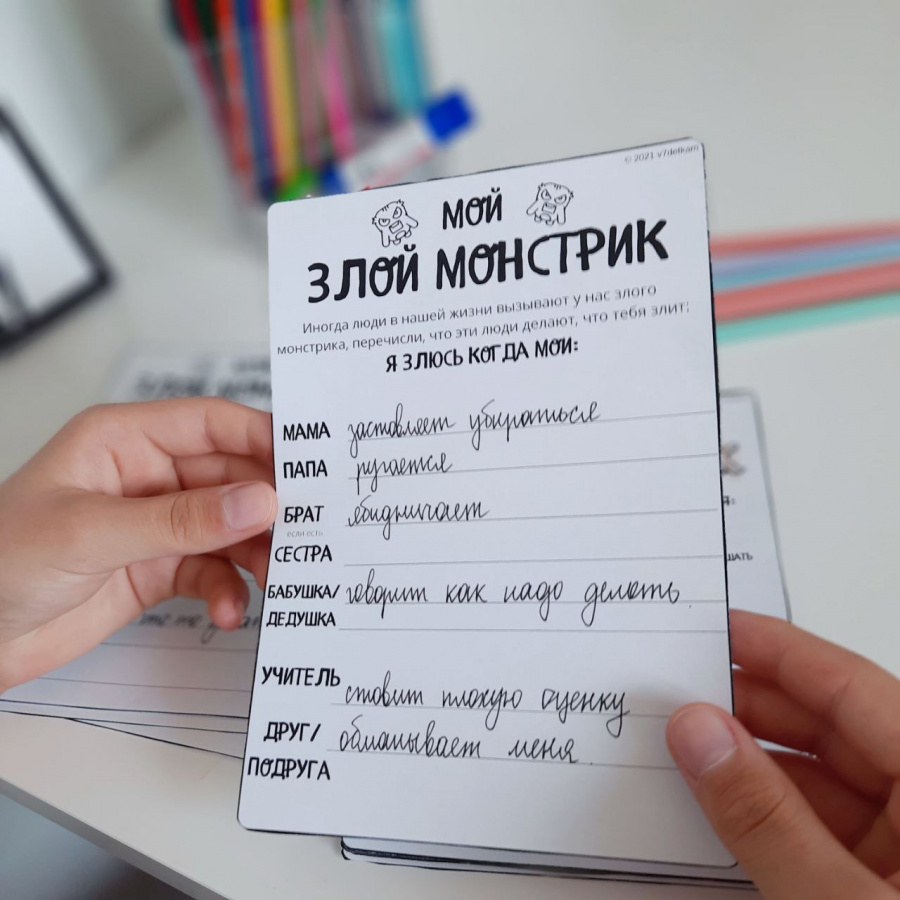 © 2021 v7detkam
МОЙ
ЗЛОЙ МОНСТРИК
Иногда люди в нашей жизни вызывают у нас злого
монстрика, перечисли, что эти люди делают, что тебя злит:
Я ЗЛЮСЬ КОГДА МОИ:
МАМА заставляет убираться
ПАПА ругается
БРАТ ябидничает
если есть
СЕСТРА
БАБУШКА/ говорит как надо делать.
ДЕДУШКА
УЧИТЕЛЬ
ставит плохую оценку
ДРУГ/ обманывает меня.
ПОДРУГА